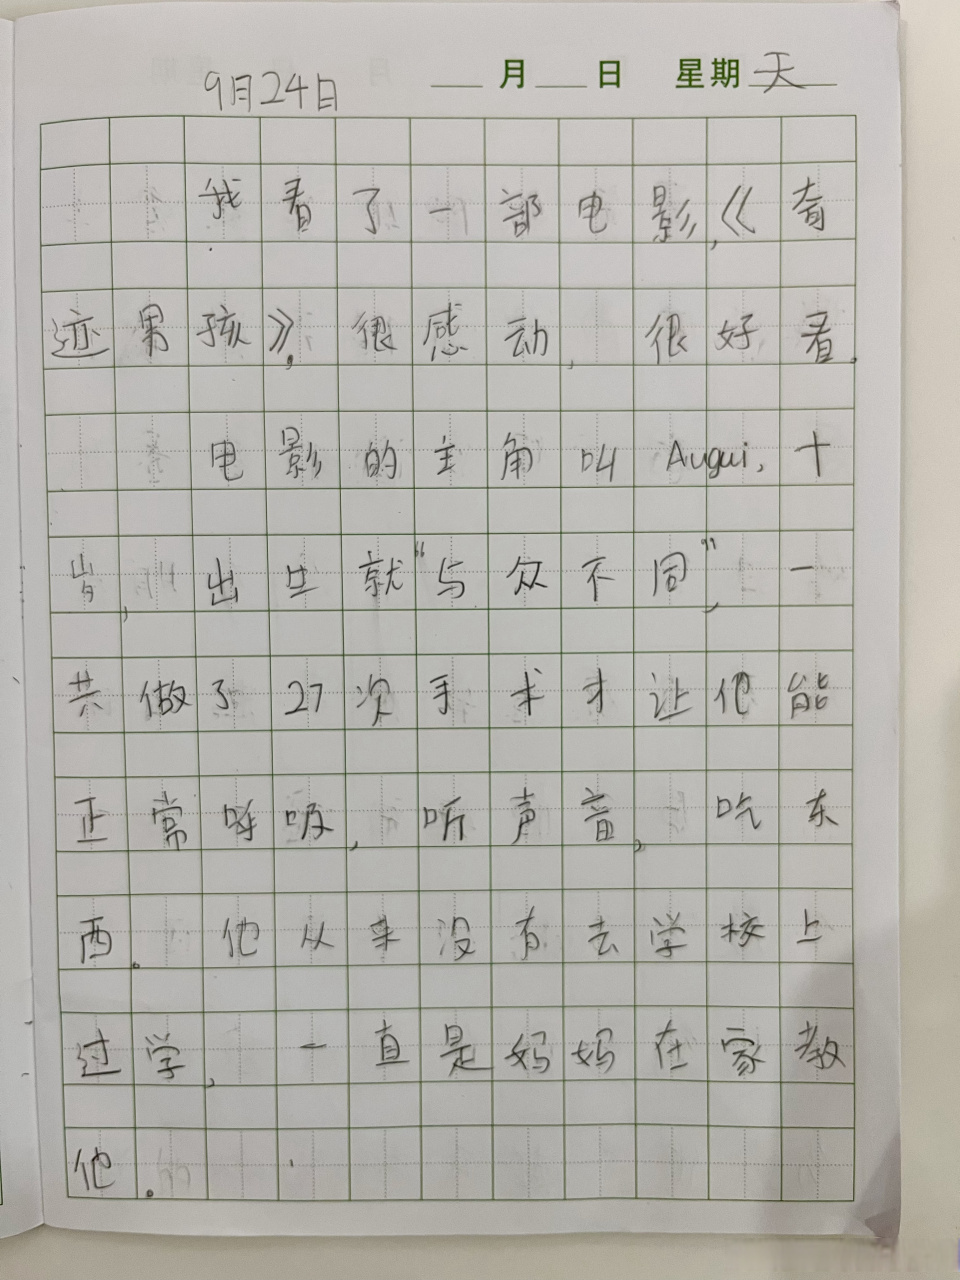 9月24日 ___月___日 星期天
我看了一部电影,《奇
迹男孩》,很感动,很好看.
电影的主角叫 Augui, 十
岁,出生就“与众不同”,一
共做了27次手术才让他能
正常呼吸,听声音,吃东
西.他从来没有去学校上
过学,一直是妈妈在家教
他.